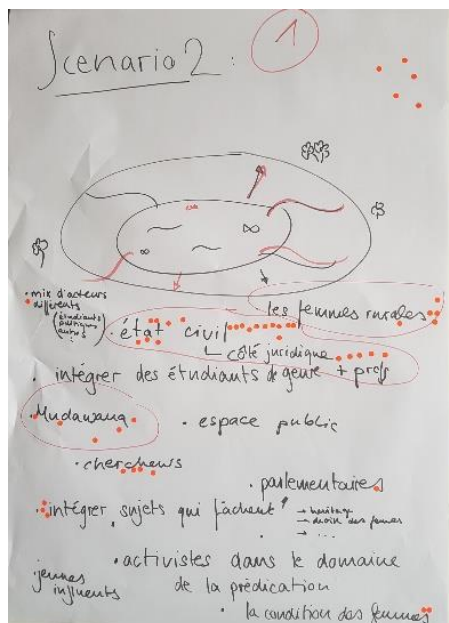 Scenario 2 :
1
• mix d'acteurs
différents
(étudiants
politiques
autres
les femmes rurales
• état civil
côté juridique
• intégrer des étudiants de genre + profs
• Mudawana
• espace public
• chercheurs
• parlementaires
• intégrer "sujets qui fâchent"
→ héritage
→ droits des femmes
→ ...
• activistes dans le domaine
de la prédication
jeunes
influents
• la condition des femmes